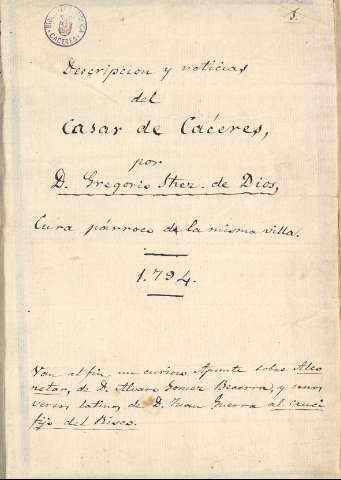 BIB. PUBLICA
CACERES
5.
Descripcion y noticias
del
Casar de Cáceres,
por
D. Gregorio Shez. de Dios,
Cura párroco de la misma villa.
1.794.
Van al fin un curioso Apunte sobre Alco
netar, de D. Alvaro Gomez Becerra, y unos
versos latinos de D. Juan Guerra al cruci
fijo del Risco.